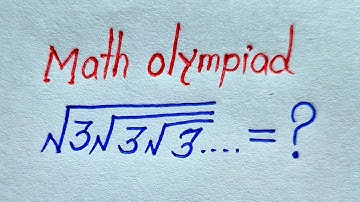 Math olympiad
√3√3√3.... = ?